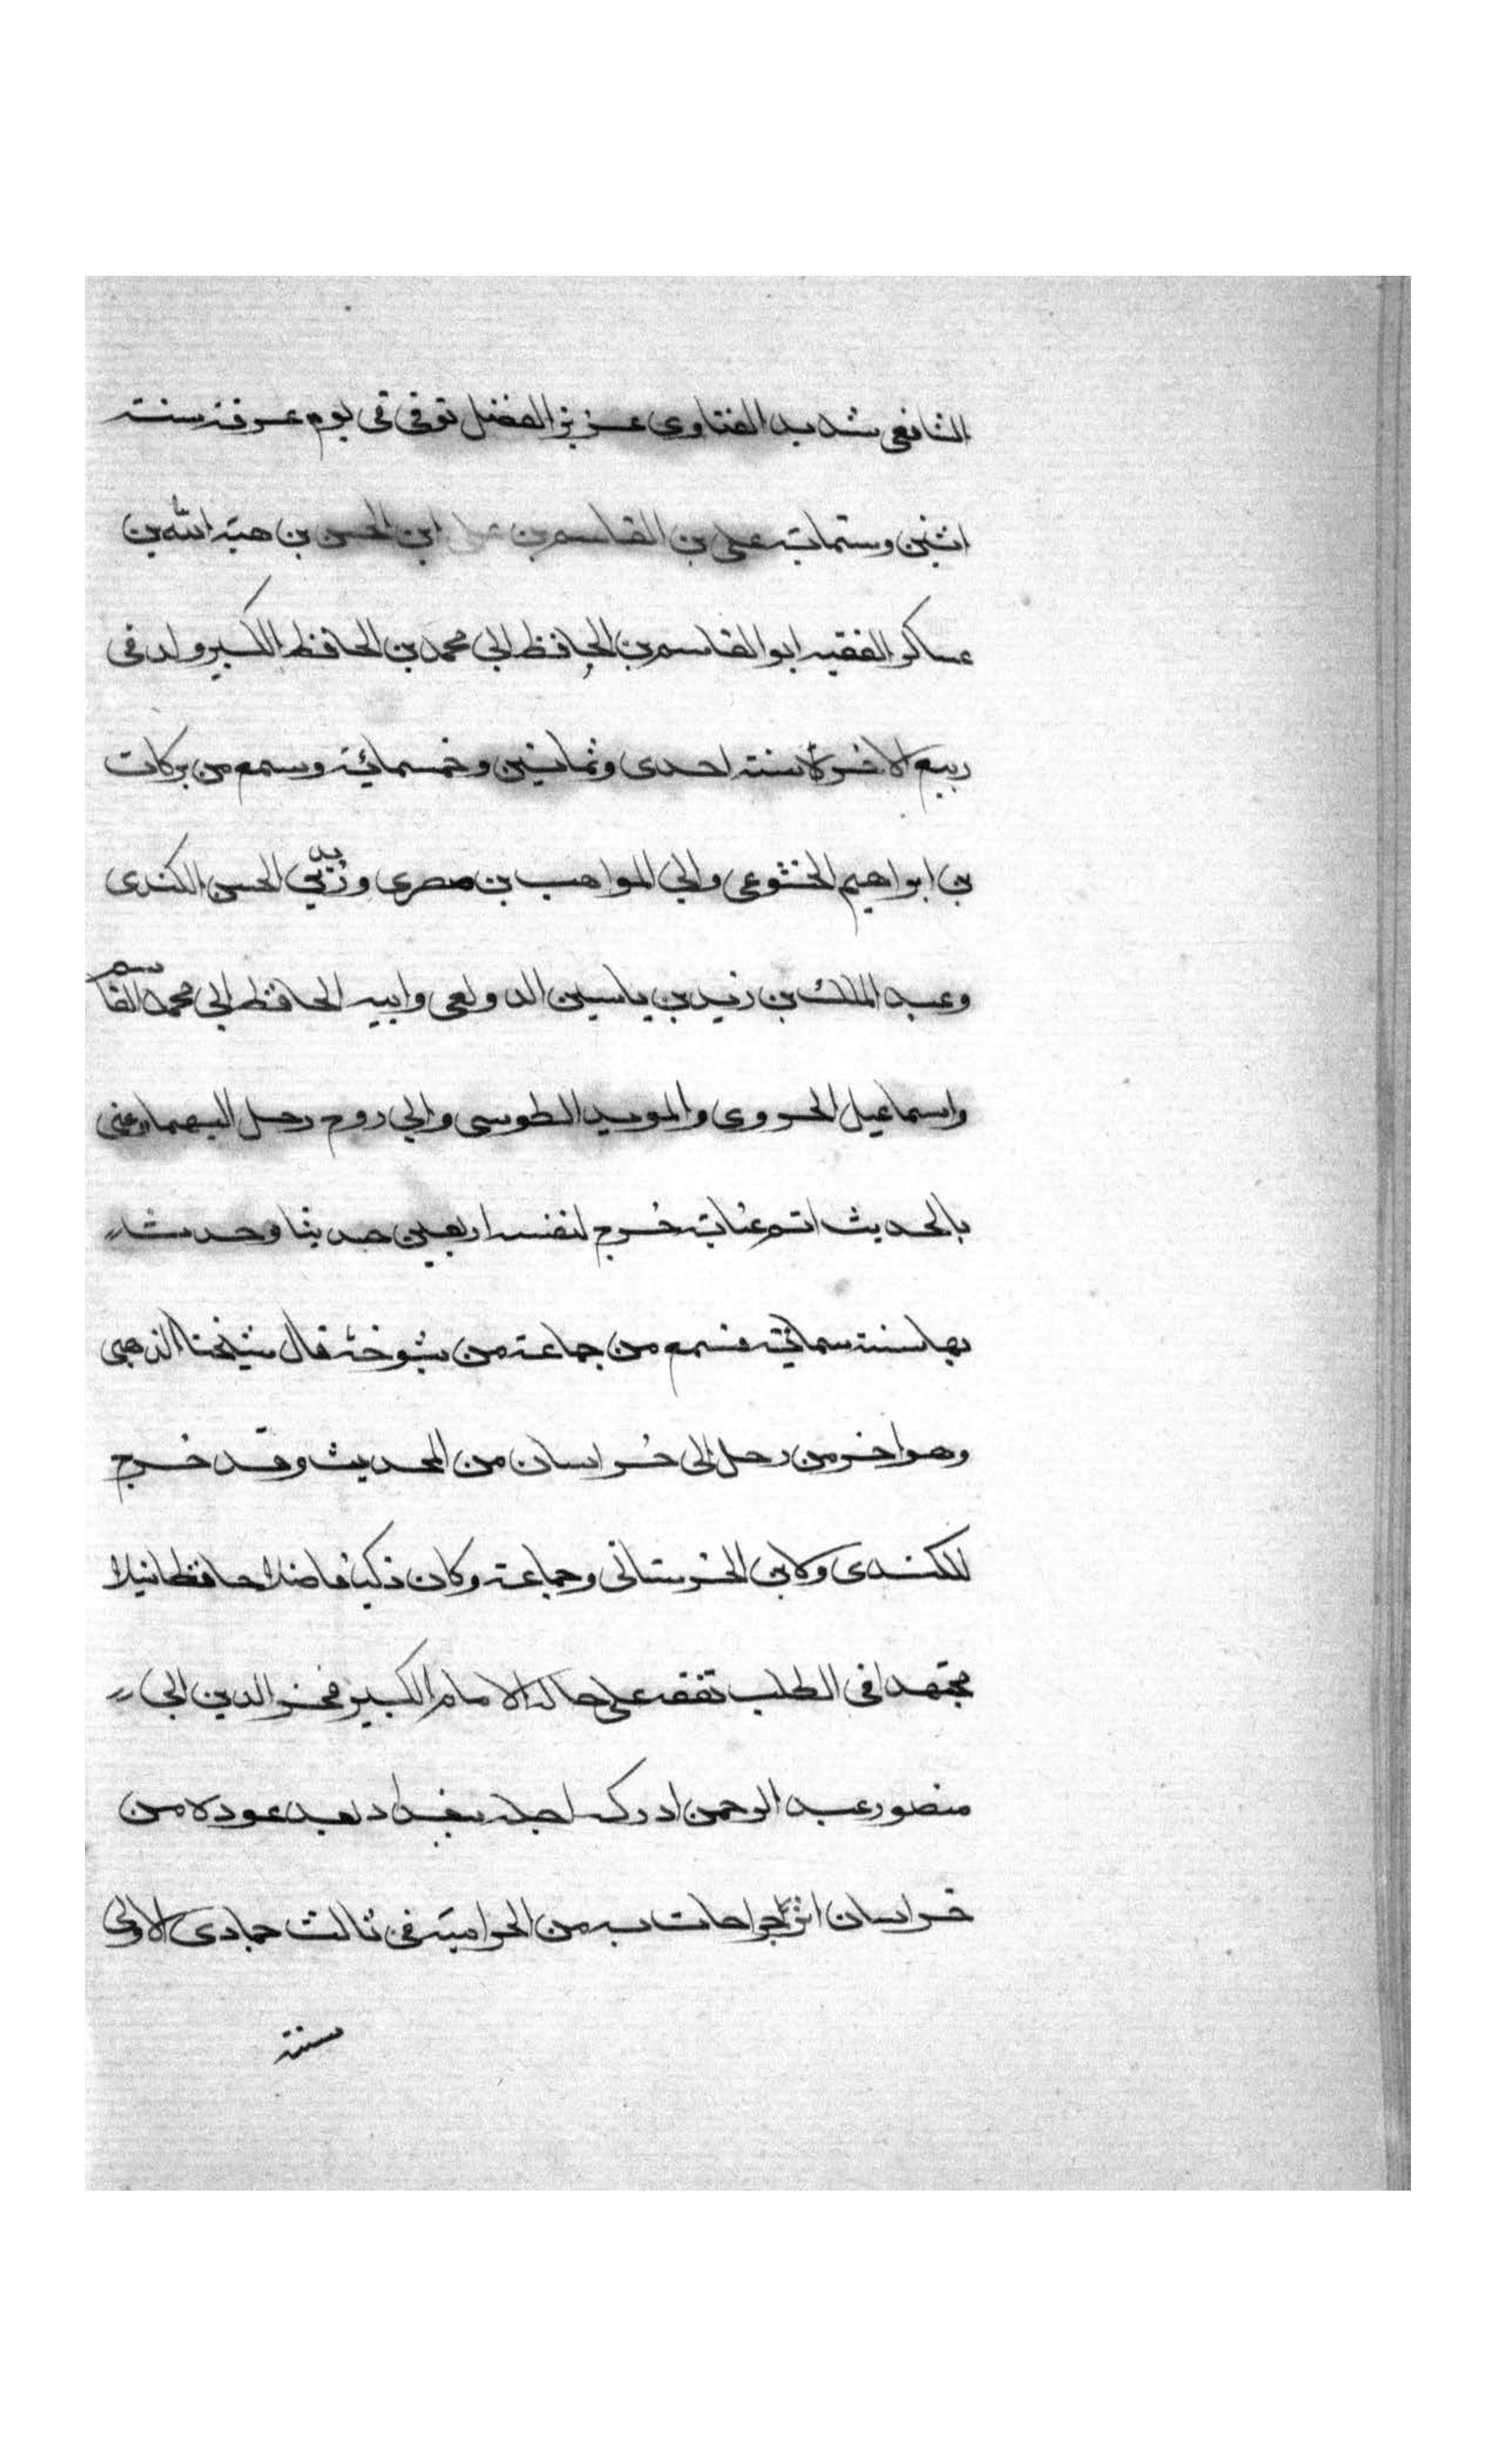 الشافعي شديد الفتاوى عزيز الفضل توفى فى يوم عرفة سنة
اثنين وستماية على بن القاسم بن على ابن الحسن بن هبة الله بن
عساكر الفقيه ابو القاسم بن الحافظ ابي محمد بن الحافظ الكبير ولد فى
ربيع الاخر سنة احدى وثمانين وخمسمائة وسمع من بركات
بن ابراهيم الخشوعى وابي المواهب بن صصرى وزيد بن الحسن الكندى
وعبد الملك بن زيد بن ياسين الدولعى وابيه الحافظ ابي محمد القاسم
واسماعيل الحروى والمويد الطوسى وابي روح رحل اليهما وعنى
بالحديث اتم عناية خرج لنفسه اربعين حديثا وحدث
بها سنة ستماية فسمع من جماعة من شيوخه قال شيخنا الذهبى
وهو اخر من رحل الى خراسان من المحديث وقد خرج
للكندى ولابن الخرستانى وجماعة وكان ذكيا فاضلا حافظا نبيلا
مجتهدا فى الطلب تفقه على خاله الامام الكبير فخر الدين ابي
منصور عبد الرحمن ادركه اجله ببغداد بعد عوده من
خراسان اثر جراحات به من الحرامية فى ثالث جمادى الاولى
سنة